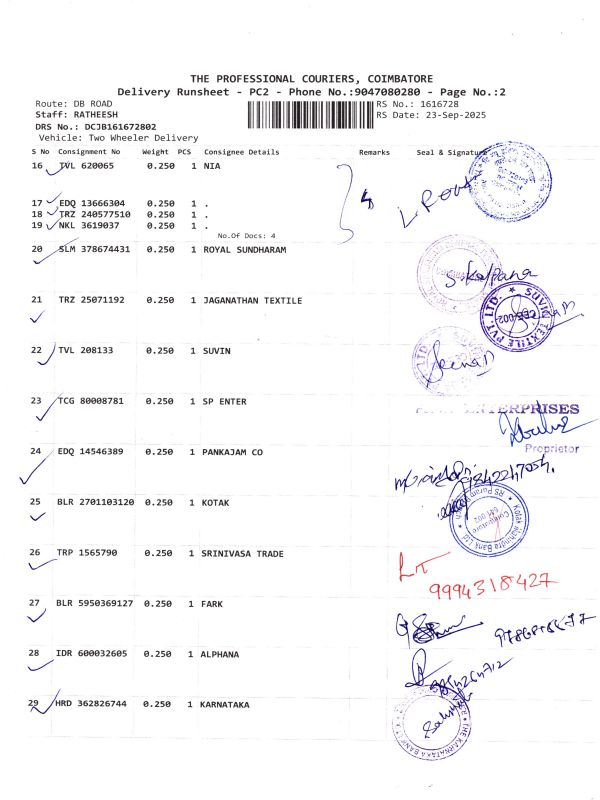 THE PROFESSIONAL COURIERS, COIMBATORE
Delivery Runsheet - PC2 - Phone No.:9047080280 - Page No.:2
Route: DB ROAD RS No.: 1616728
Staff: RATHEESH RS Date: 23-Sep-2025
DRS No.: DCJB161672802
Vehicle: Two Wheeler Delivery
S No Consignment No Weight PCS Consignee Details Remarks Seal & Signature
16 TVL 620065 0.250 1 NIA
17 EDQ 13666304 0.250 1 .
18 TRZ 240577510 0.250 1 .
19 NKL 3619037 0.250 1 .
No.Of Docs: 4
4
20 SLM 378674431 0.250 1 ROYAL SUNDHARAM
S. Kalpana
21 TRZ 25071192 0.250 1 JAGANATHAN TEXTILE
SUVIN TEXTILE PVT. LTD.
22 TVL 208133 0.250 1 SUVIN
23 TCG 80008781 0.250 1 SP ENTER
ENTERPRISES
Proprietor
24 EDQ 14546389 0.250 1 PANKAJAM CO
25 BLR 2701103120 0.250 1 KOTAK
Kotak Mahindra Bank Ltd
Coimbatore
26 TRP 1565790 0.250 1 SRINIVASA TRADE
9994318427
27 BLR 5950369127 0.250 1 FARK
28 IDR 600032605 0.250 1 ALPHANA
29 HRD 362826744 0.250 1 KARNATAKA
THE KARNATAKA BANK